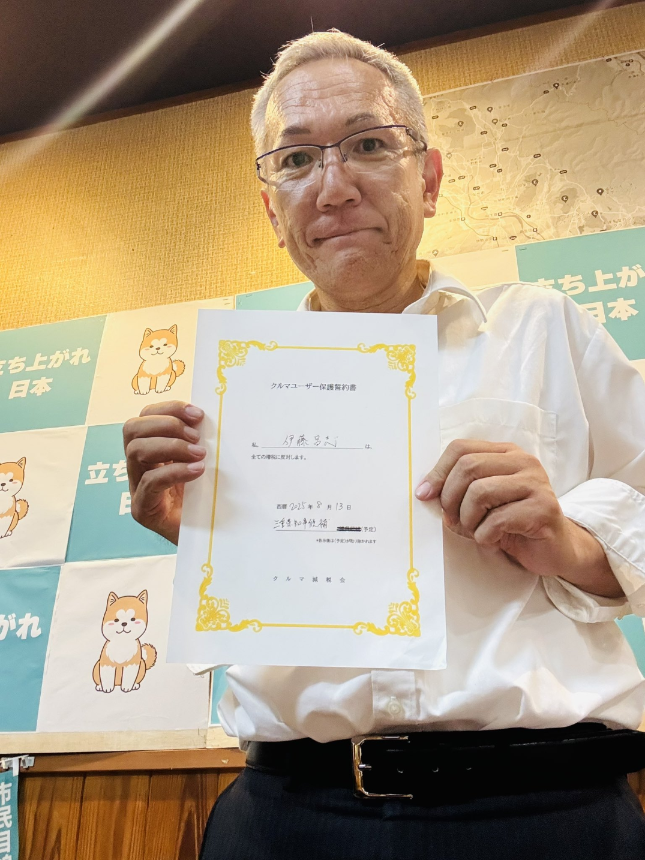 立ち上がれ
日本
立ち上がれ
日本
立ち
日
がれ
市民目線
クルマユーザー保護誓約書
私 伊藤昌志 は、
全ての増税に反対します。
西暦 2025 年 8 月 13 日
三重県知事候補 (予定)
クルマ減税会